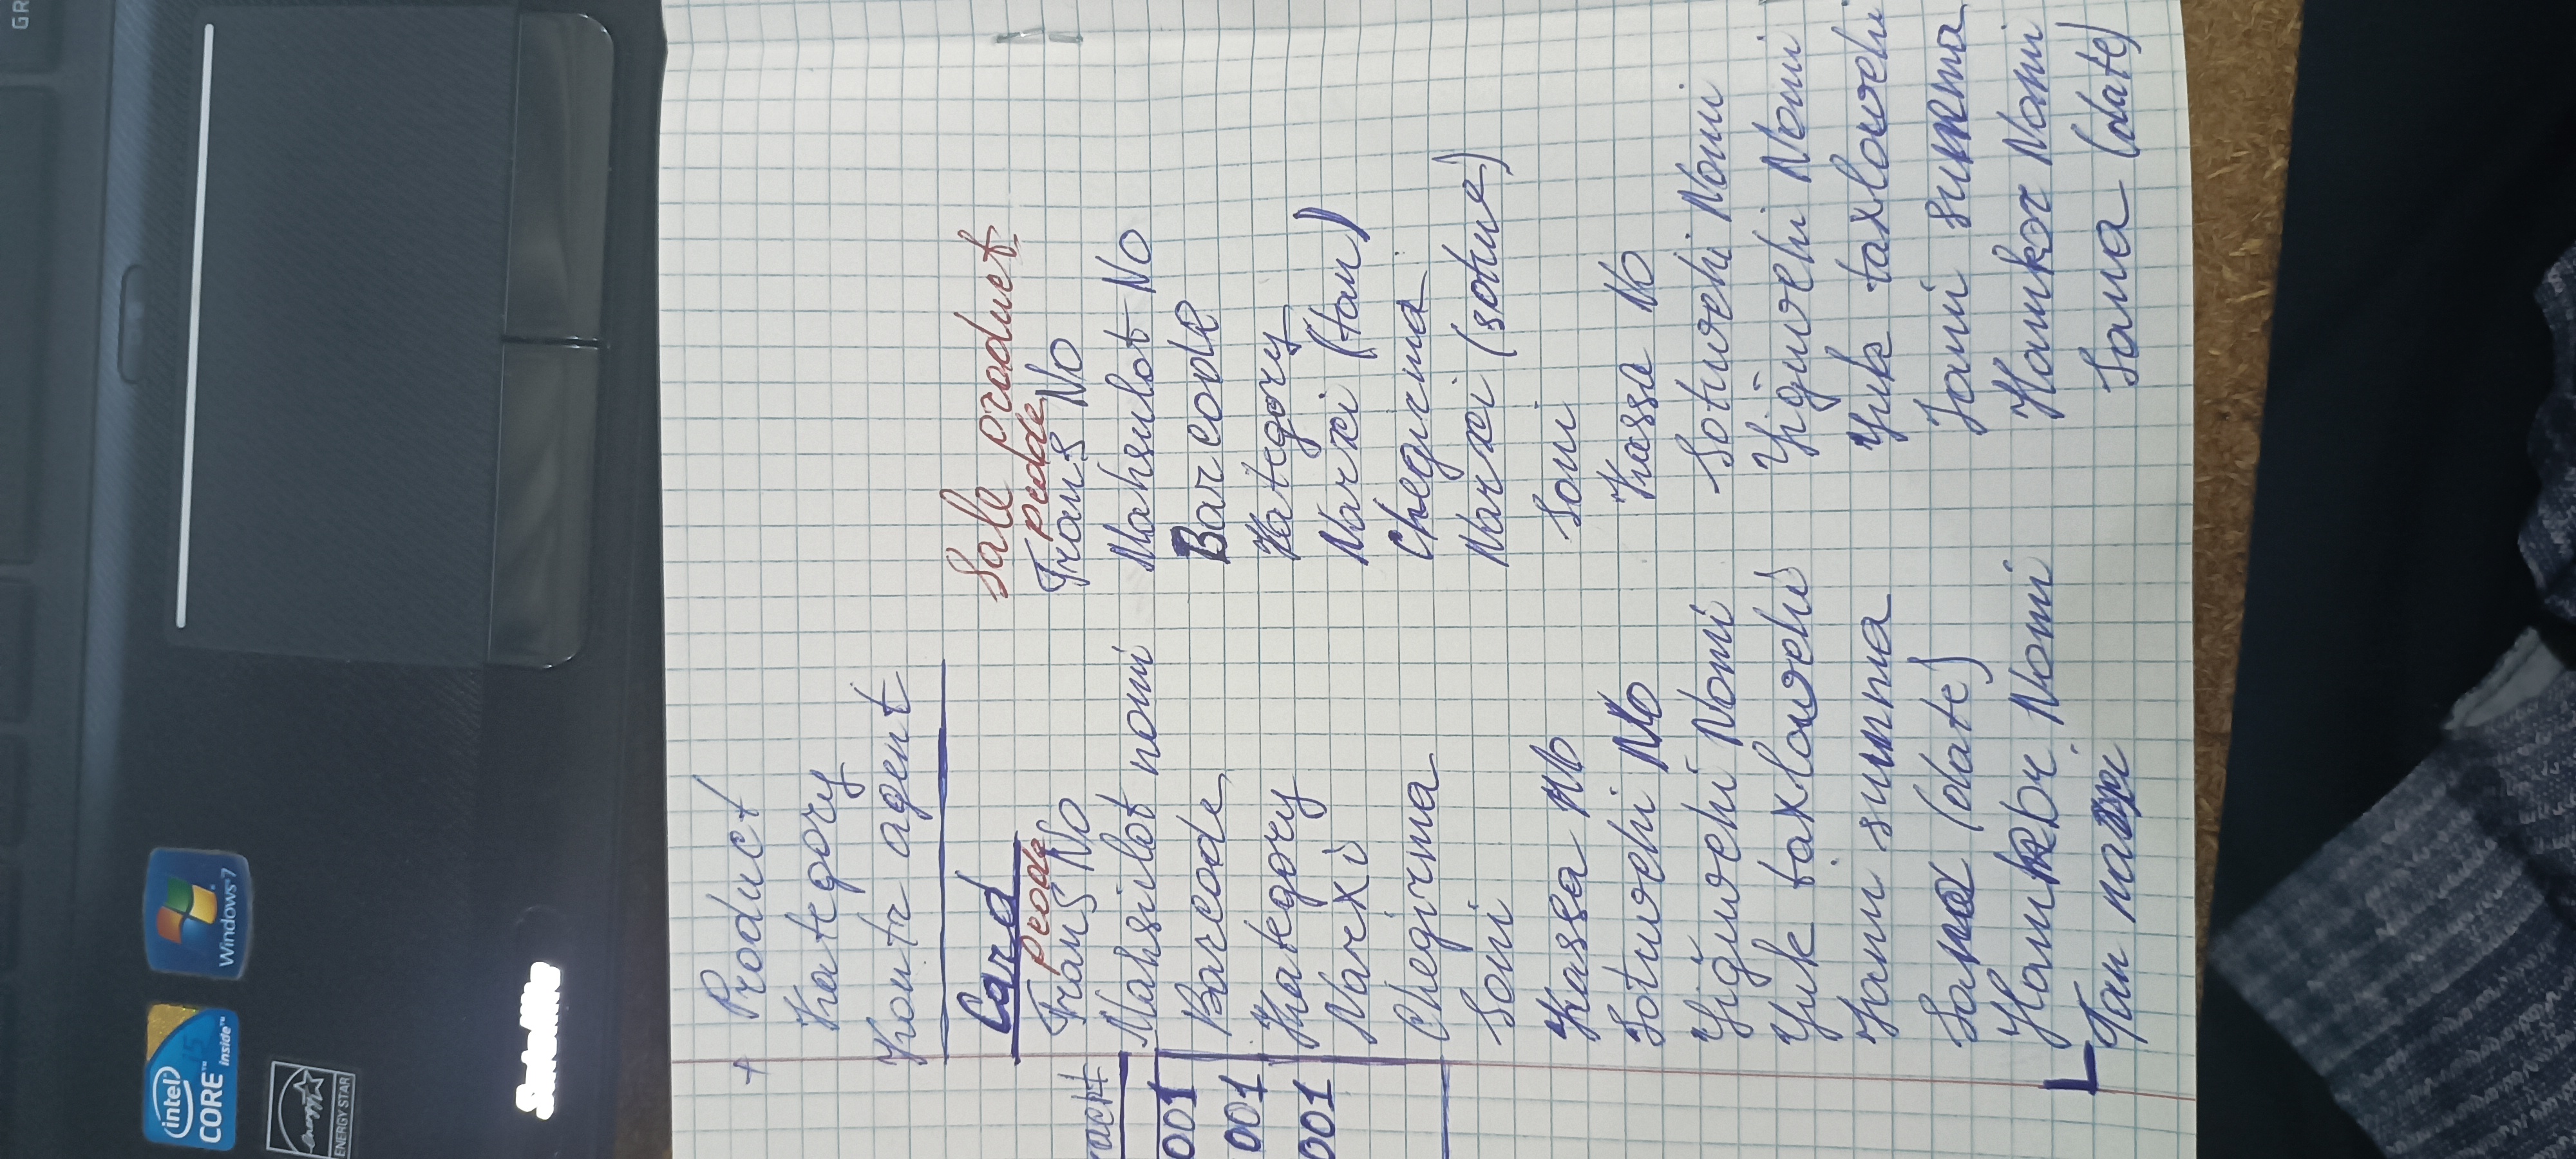 GR
intel
CORE i5
inside™
ENERGY STAR
Windows® 7
Satellite
+ Product
Kategory
Kontr agent
Card
Pcode
Trans No
Mahsilot nomi
Barcode
Kategory
Narxi
Chegirma
Soni
Kassa No
Sotuvchi No
Yiğuvchi Nomi
Yuk taxlovchi
Jami summa
Sana (date)
Hamkor Nomi
Tan narx
001
001
001
Sale product
Trans No
Mahsulot No
Barcode
Kategory
Narxi (tan)
Chegirma
Narxi (sotuv)
Soni
Kassa No
Sotuvchi Nomi
Yiğuvchi Nomi
Yuk taxlovchi
Jami summa
Hamkor Nomi
Sana (date)